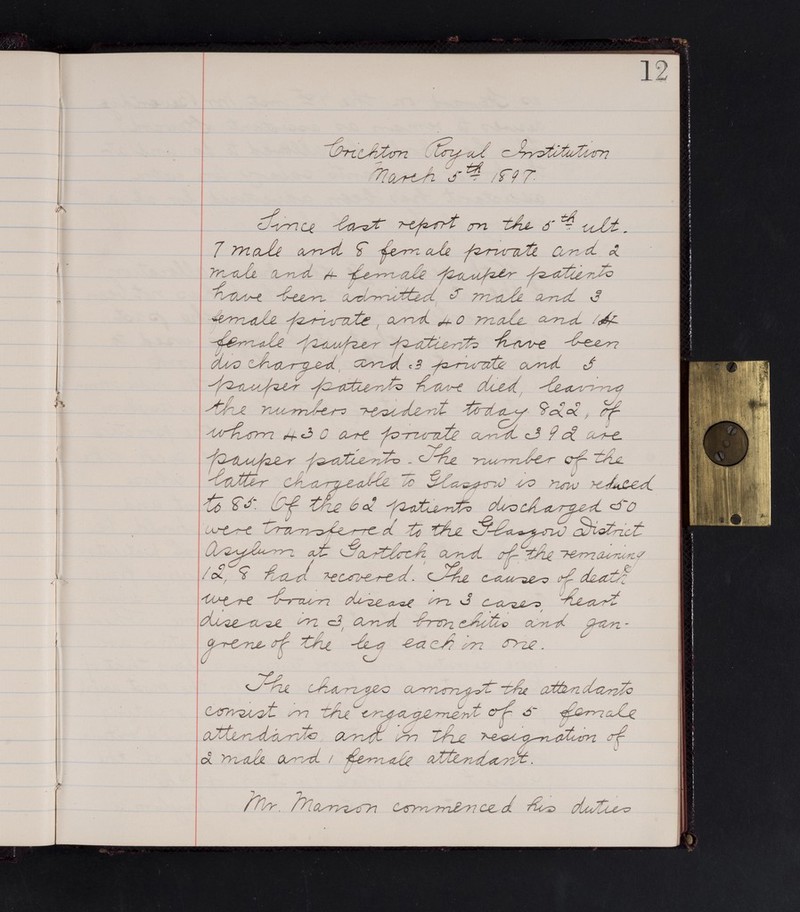 12
Crichton Royal Institution
March 5th 1897.
Since last report on the 5th ult.
7 male and 8 female private and 2
male and 4 female pauper patients
have been admitted, 5 male and 3
female private, and 40 male and 14
female pauper patients have been
discharged, and 3 private and 5
pauper patients have died, leaving
the numbers resident today 822, of
whom 430 are private and 392 are
pauper patients. The number of the
latter chargeable to Glasgow is now reduced
to 85. Of the 62 patients discharged 50
were transferred to the Glasgow District
Asylum at Gartloch, and of the remaining
12, 8 had recovered. The causes of death
were brain disease in 3 cases, heart
disease in 3, and bronchitis and gan-
grene of the leg each in one.
The changes amongst the attendants
consist in the engagement of 5 female
attendants and in the resignation of
2 male and 1 female attendant.
Mr. Manson commenced his duties